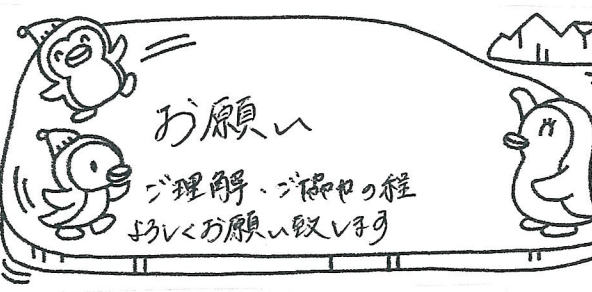 お願い
ご理解・ご協力の程
よろしくお願い致します